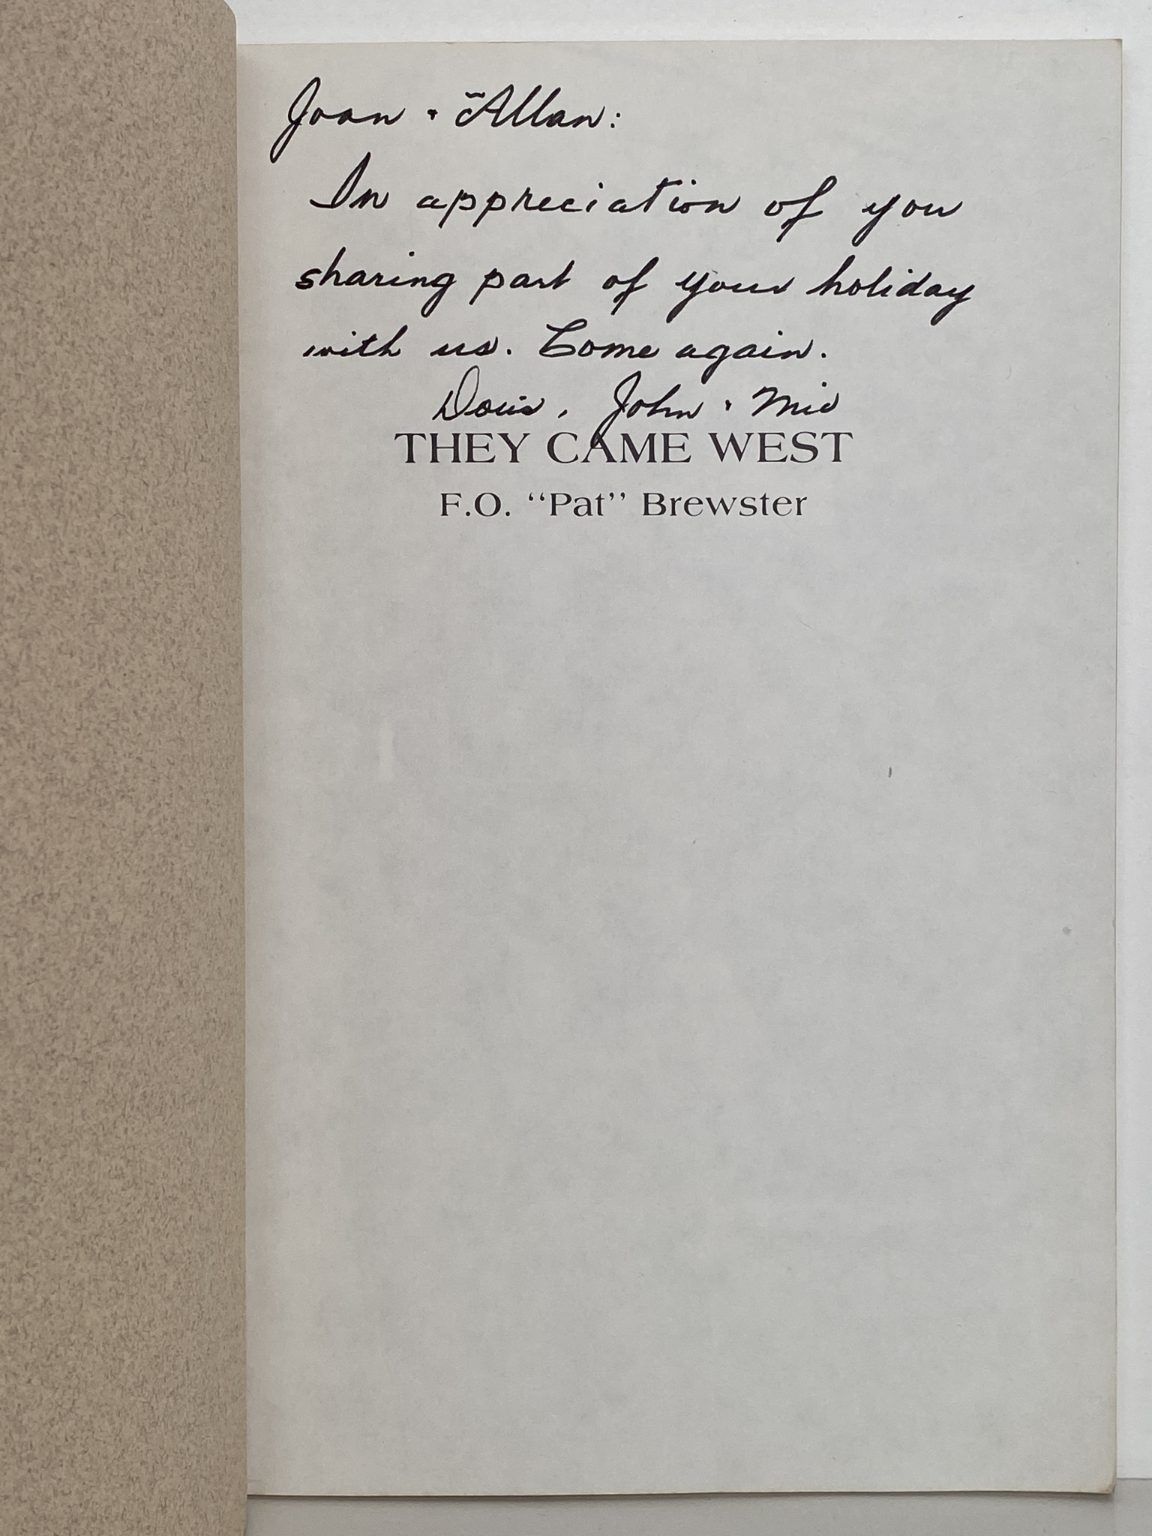 Joan + Allan:
In appreciation of you
sharing part of your holiday
with us. Come again.
Doris, John + Mic
THEY CAME WEST
F.O. “Pat” Brewster